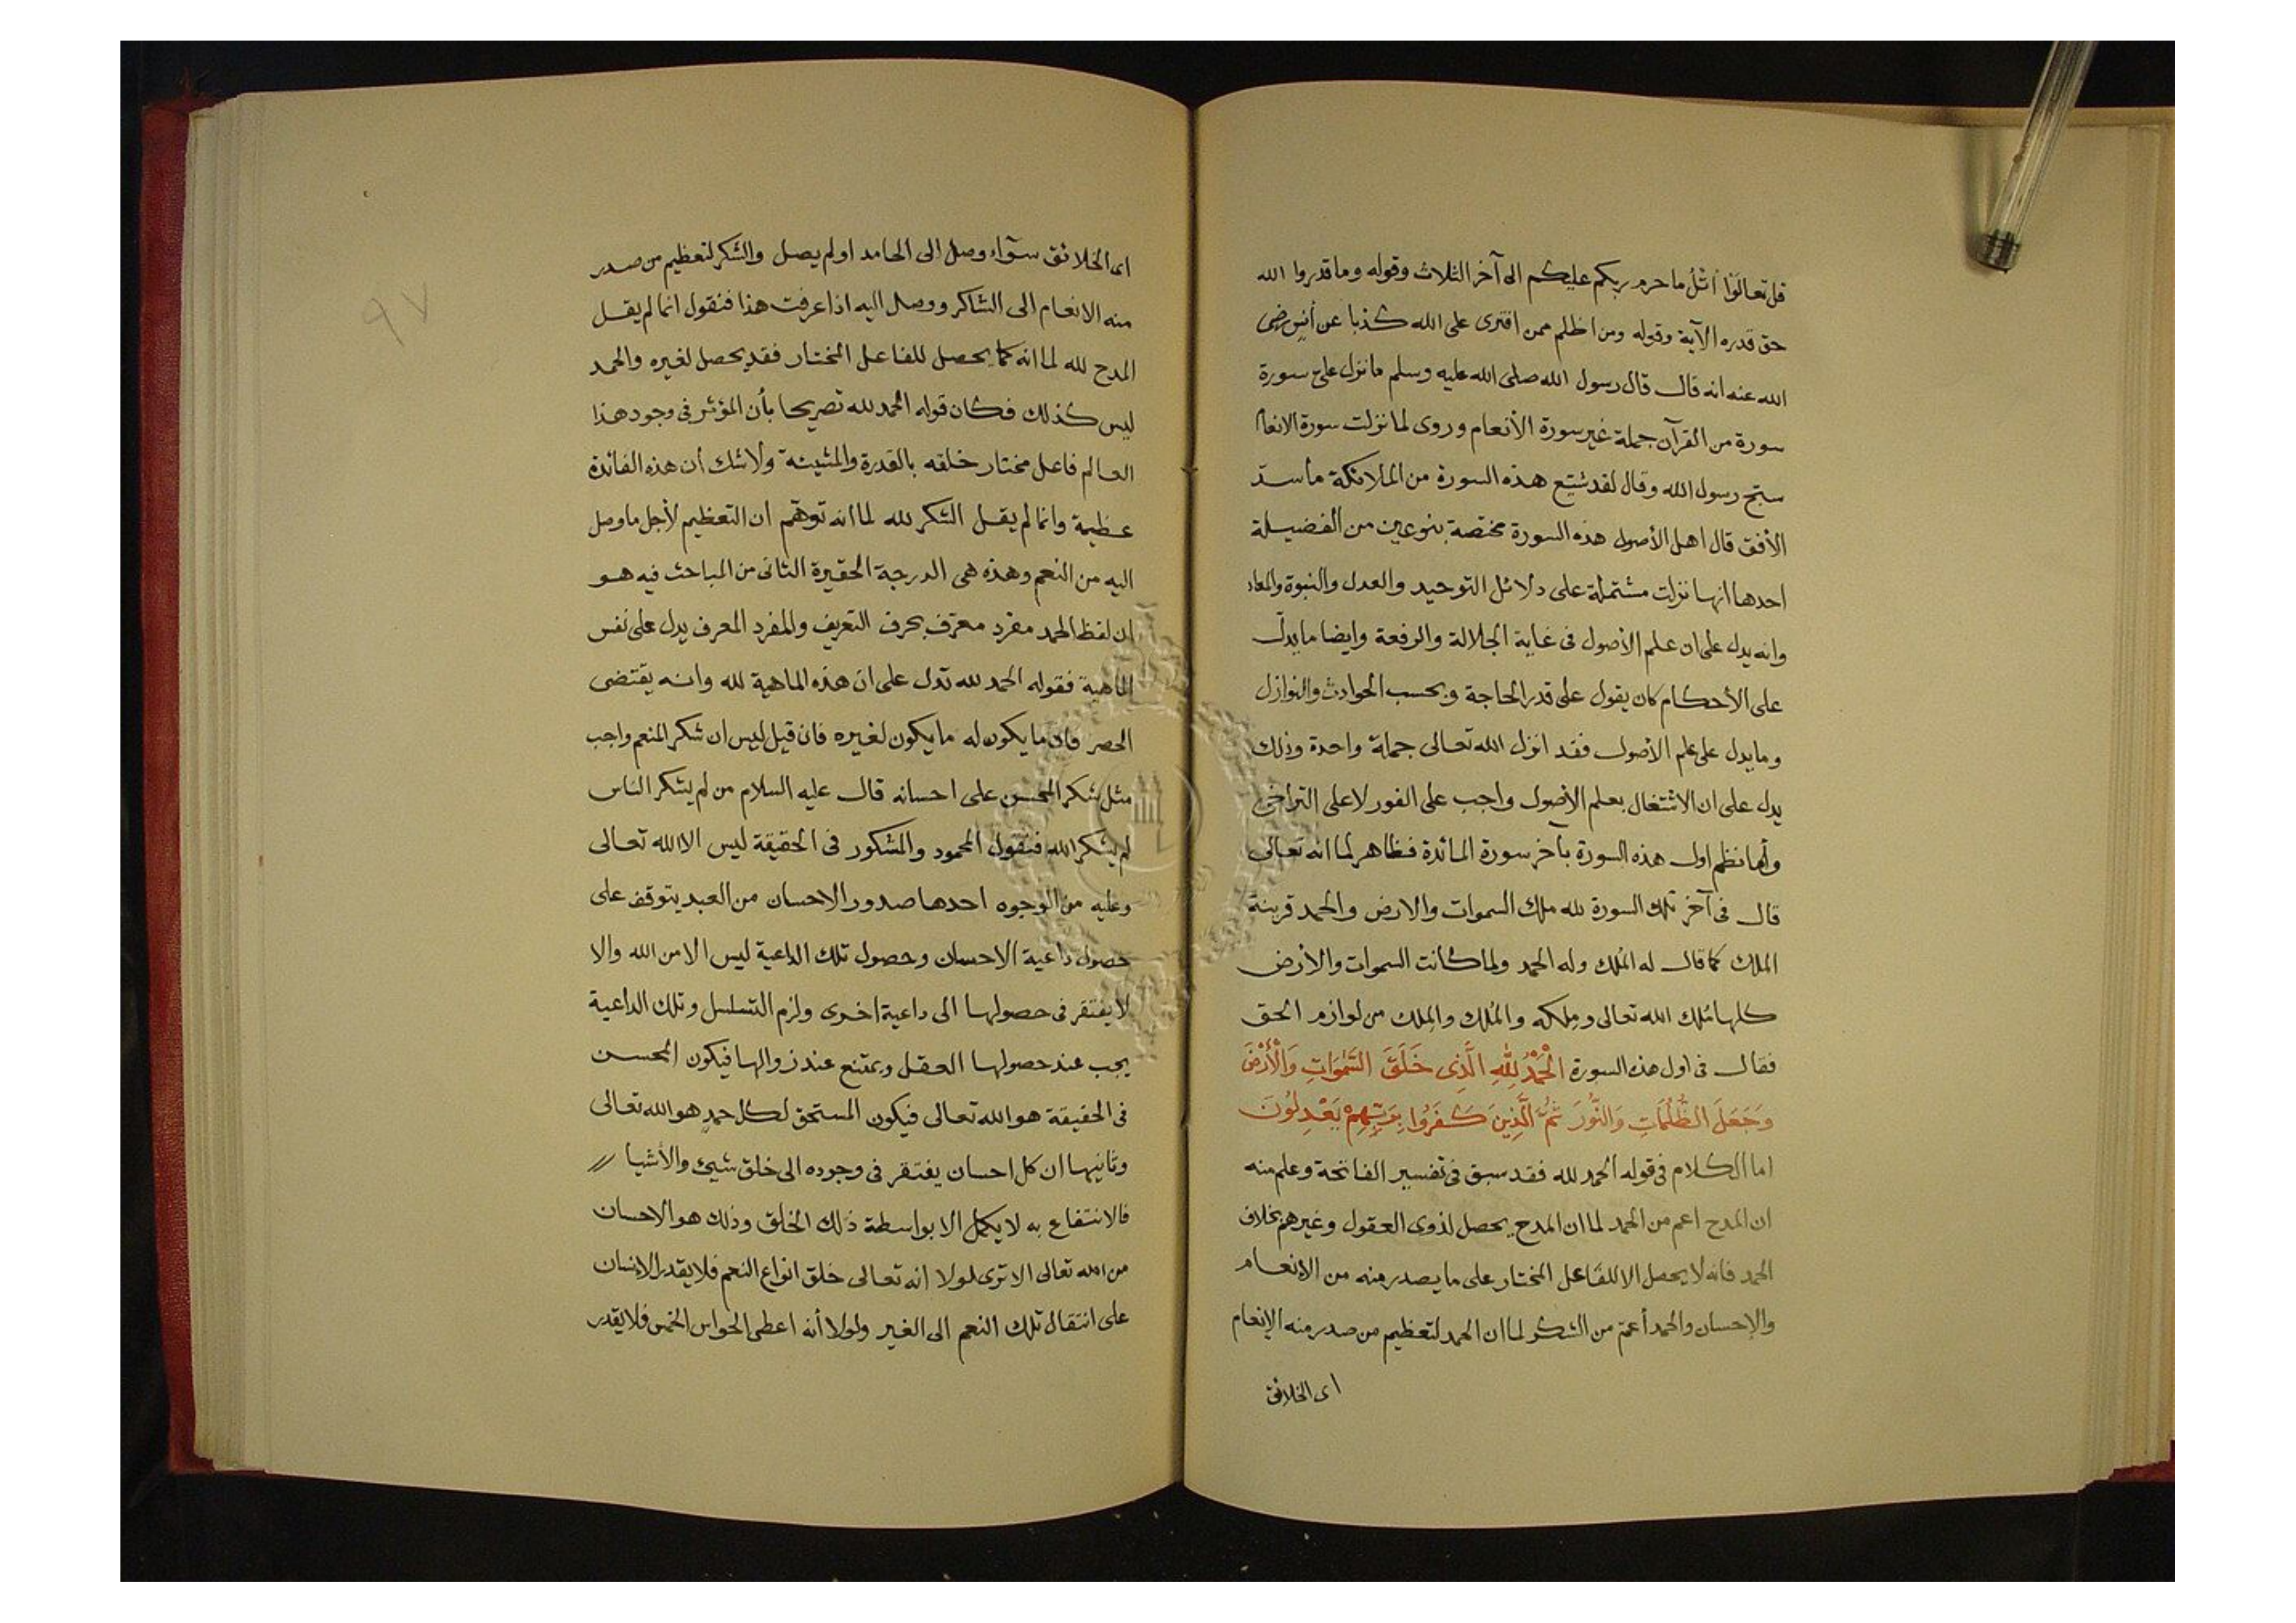 قل تعالَوْا أتلُ ما حرم ربكم عليكم الى آخر الثلاث وقوله وما قدروا الله
حق قدره الآية وقوله ومن اظلم ممن افترى على الله كذبا عن أنس رضى
الله عنه انه قال قال رسول الله صلى الله عليه وسلم ما نزل علىّ سورة
سورة من القرآن جملة غير سورة الأنعام وروى لما نزلت سورة الانعام
سبّح رسول الله وقال لقد شيّع هذه السورة من الملائكة ما سدّ
الأفق قال اهل الأصول هذه السورة مختصة بنوعين من الفضيلة
احدها انها نزلت مشتملة على دلائل التوحيد والعدل والنبوة والمعاد
وانه يدل على ان علم الأصول فى غاية الجلالة والرفعة وايضا ما يدلّ
على الأحكام كان يقول على قدر الحاجة وبحسب الحوادث والنوازل
وما يدل على علم الأصول فقد انزل الله تعالى جملة واحدة وذلك
يدل على ان الاشتغال بعلم الأصول واجب على الفور لا على التراخى
وأما نظم اول هذه السورة بآخر سورة المائدة فظاهر لما انه تعالى
قال فى آخر تلك السورة لله ملك السموات والارض والحمد قرينة
الملك كما قال له الملك وله الحمد ولما كانت السموات والأرض
كلها مُلك الله تعالى ومِلكه والمُلك والمِلك من لوازم الحق
فقال فى اول هذه السورة الْحَمْدُ لِلّٰهِ الَّذِى خَلَقَ السَّمٰوَاتِ وَالْأَرْضَ
وَجَعَلَ الظُّلُمَاتِ وَالنُّورَ ثُمَّ الَّذِينَ كَفَرُوا بِرَبِّهِمْ يَعْدِلُونَ
اما الكلام فى قوله الحمد لله فقد سبق فى تفسير الفاتحة وعلم منه
ان المدح اعم من الحمد لما ان المدح يحصل لذوى العقول وغيرهم بخلاف
الحمد فانه لا يحصل الا للفاعل المختار على ما يصدر منه من الأنعام
والإحسان والحمد أعمّ من الشكر لما ان الحمد لتعظيم من صدر منه الإنعام
اى الخلائق
اى الخلائق سوآء وصل الى الحامد او لم يصل والشكر لتعظيم من صدر
منه الانعام الى الشاكر ووصل اليه اذا عرفت هذا فنقول انما لم يقل
المدح لله لما انه كما يحصل للفاعل المختار فقد يحصل لغيره والحمد
ليس كذلك فكان قوله الحمد لله تصريحا بأن المؤثر فى وجود هذا
العالم فاعل مختار خلقه بالقدرة والمشيئة ولا شك أن هذه الفائدة
عظيمة وانما لم يقل الشكر لله لما انه توهّم ان التعظيم لأجل ما وصل
اليه من النعم وهذه هى الدرجة الحقيرة الثانى من المباحث فيه هو
ان لفظ الحمد مفرد معرّف بحرف التعريف والمفرد المعرف يدل على نفس
الماهية فقوله الحمد لله تدل على ان هذه الماهية لله وانه يقتضى
الحصر فان ما يكون له ما يكون لغيره فان قيل ليس ان شكر المنعم واجب
مثل شكر المحسن على احسانه قال عليه السلام من لم يشكر الناس
لم يشكر الله فنقول المحمود والمشكور فى الحقيقة ليس الا الله تعالى
وعليه من الوجوه احدها صدور الاحسان من العبد يتوقف على
حصول داعية الاحسان وحصول تلك الداعية ليس الا من الله والا
لا يفتقر فى حصولها الى داعية اخرى ولزم التسلسل وتلك الداعية
يجب عند حصولها العقل ويمتنع عند زوالها فيكون المحسن
فى الحقيقة هو الله تعالى فيكون المستحق لكل حمدٍ هو الله تعالى
وثانيها ان كل احسان يفتقر فى وجوده الى خلق شيئ والأشيا
فالانتفاع به لا يكمل الا بواسطة ذلك الخلق وذلك هو الاحسان
من الله تعالى الا ترى لولا انه تعالى خلق انواع النعم فلا يقدر الانسان
على انتقال تلك النعم الى الغير ولولا أنه اعطى الحواس الخمس فلا يقدر
٩٧